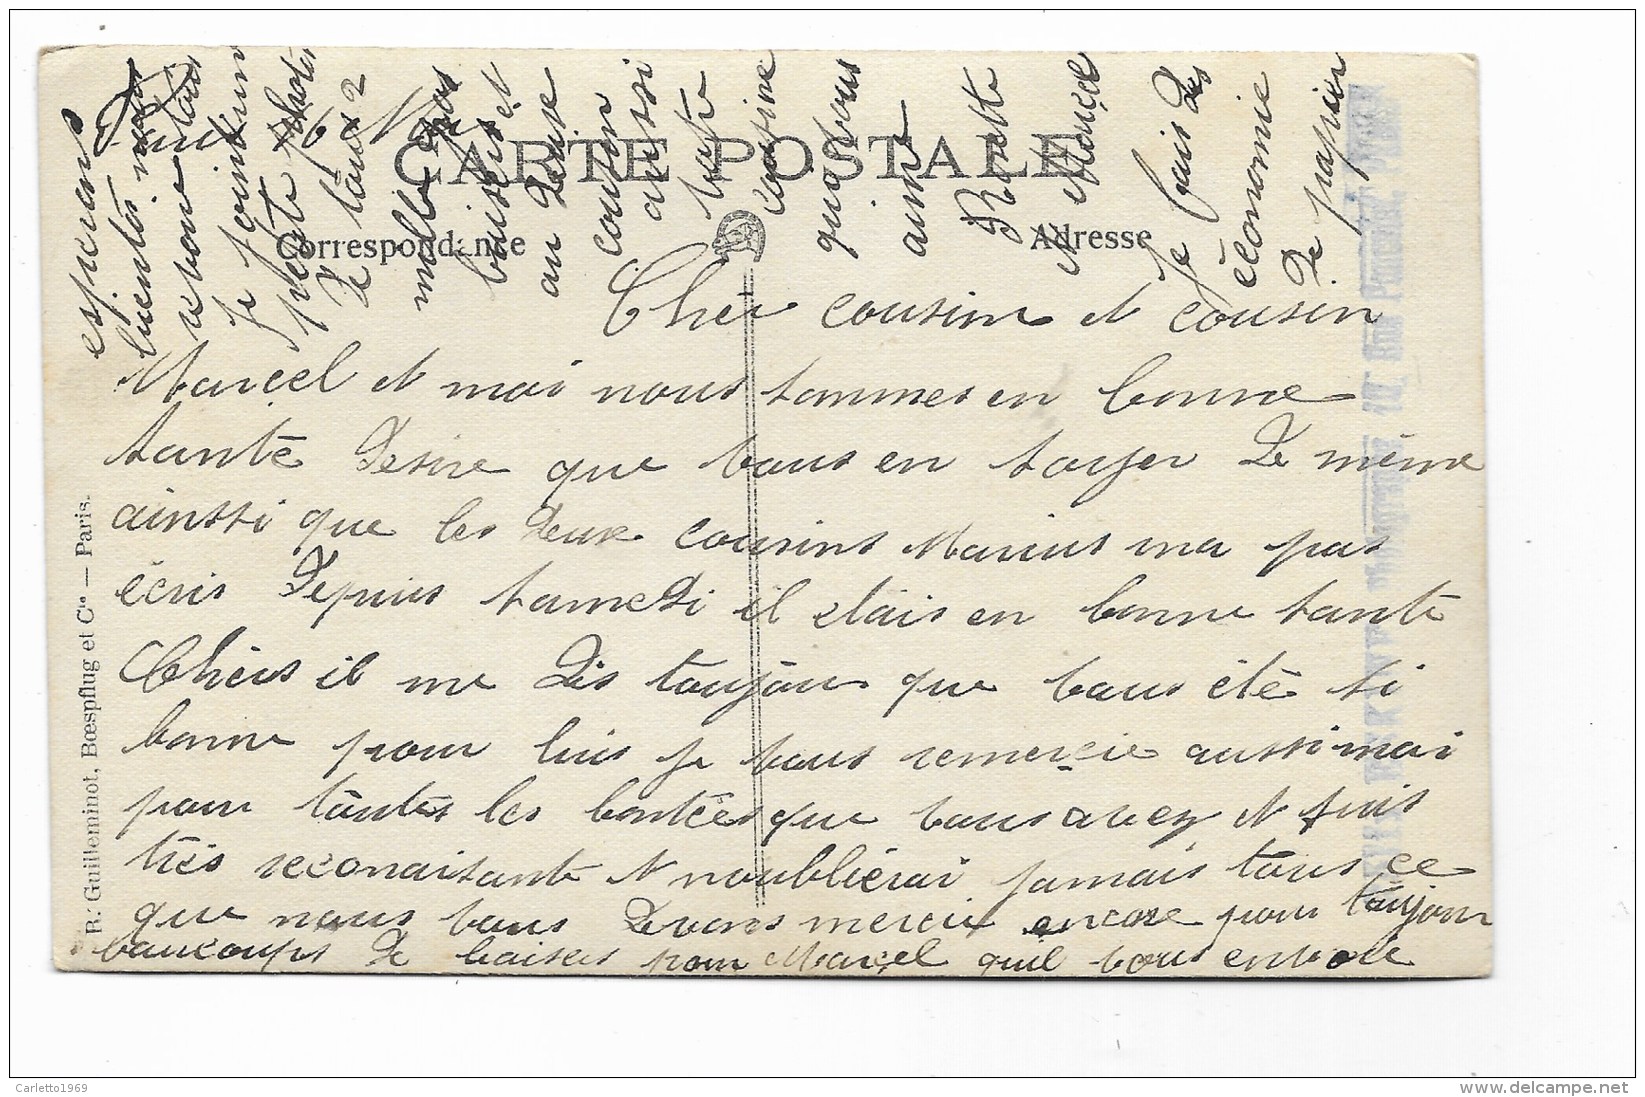 CARTE POSTALE
Correspondance
Adresse
Cher cousin et cousin
Marcel et moi nous sommes en bonne
santé desire que vous en soyer de même
ainssi que les deux cousins Marius ma pas
écris depuis samedi il étais en bonne sante
Chéers il me dis toujour que vous été si
bonne pour luis je vous remercie aussi moi
pour toutes les bontées que vous avez et suis
très reconaisante et noublierai jamais tous ce
que nous vous devons mercie encore pour toujour
beaucoups de baisers pour Marcel quil vous envoie
esperons
bientôt
reboire tous
Je joint un
petite photos
de tous 2
mille gros
baisers et
au
cousin
aussi
votre
cousine
qui vous
aime
Rosette
et Marcel
Je fais des
économie
de papier
R. Guilleminot, Bœspflug et Cie — Paris.